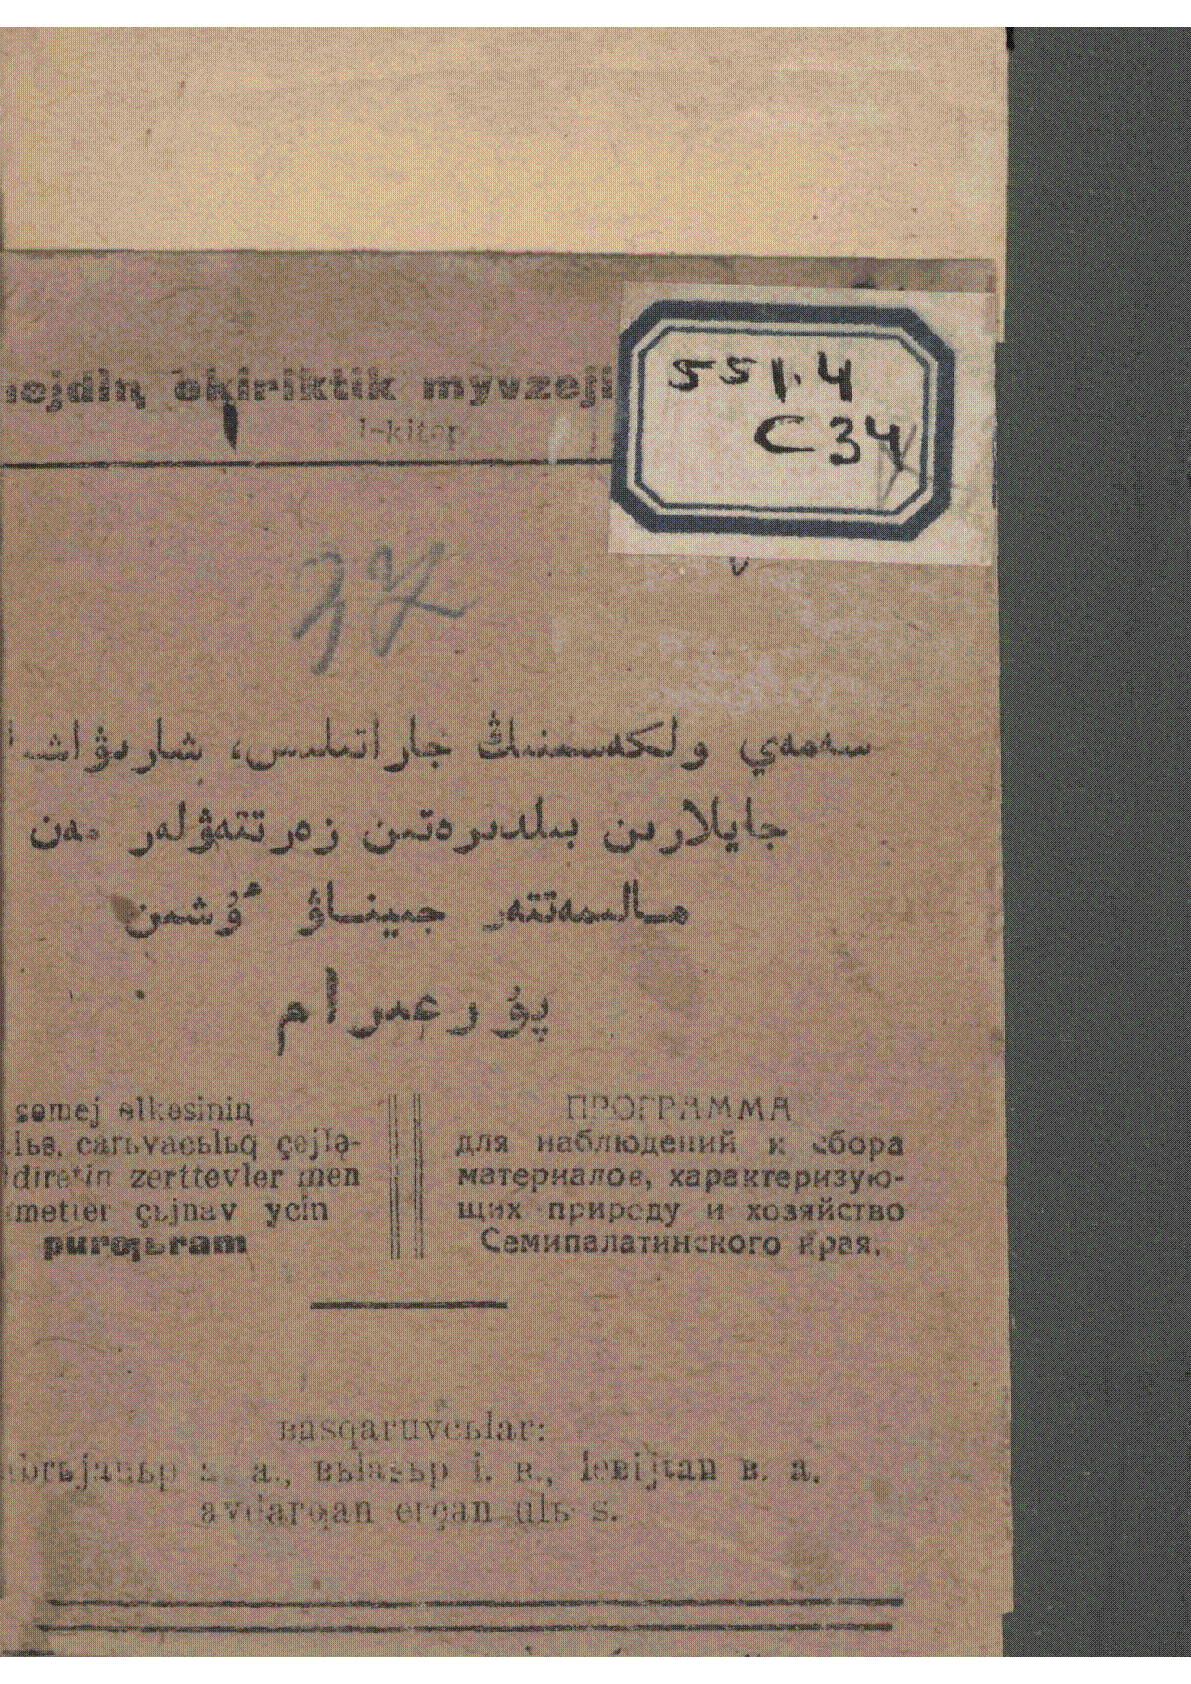 ekiriktik myvzeji
551.4
C34
1-kitap
37
سەمەي ولكەسىنىڭ جاراتىلىس، شارىۋاشى
جايلارىن بىلدىرەتىن زەرتتەۋلەر مەن
مالىمەتتەر جىيناۋ ٴۇشىن
پۇرعىرام
semej elkesiniꞑ
carьvacьlьq çejle-
diretin zerttevler men
metter çьjnav ycin
purqьram
ПРОГРАММА
для наблюдений и сбора
материалов, характеризую-
щих природу и хозяйство
Семипалатинского края.
вasqaruvcьlar:
a., вьlasьp i. в., leвijtan в. a.
avdarqan erçan ulь s.